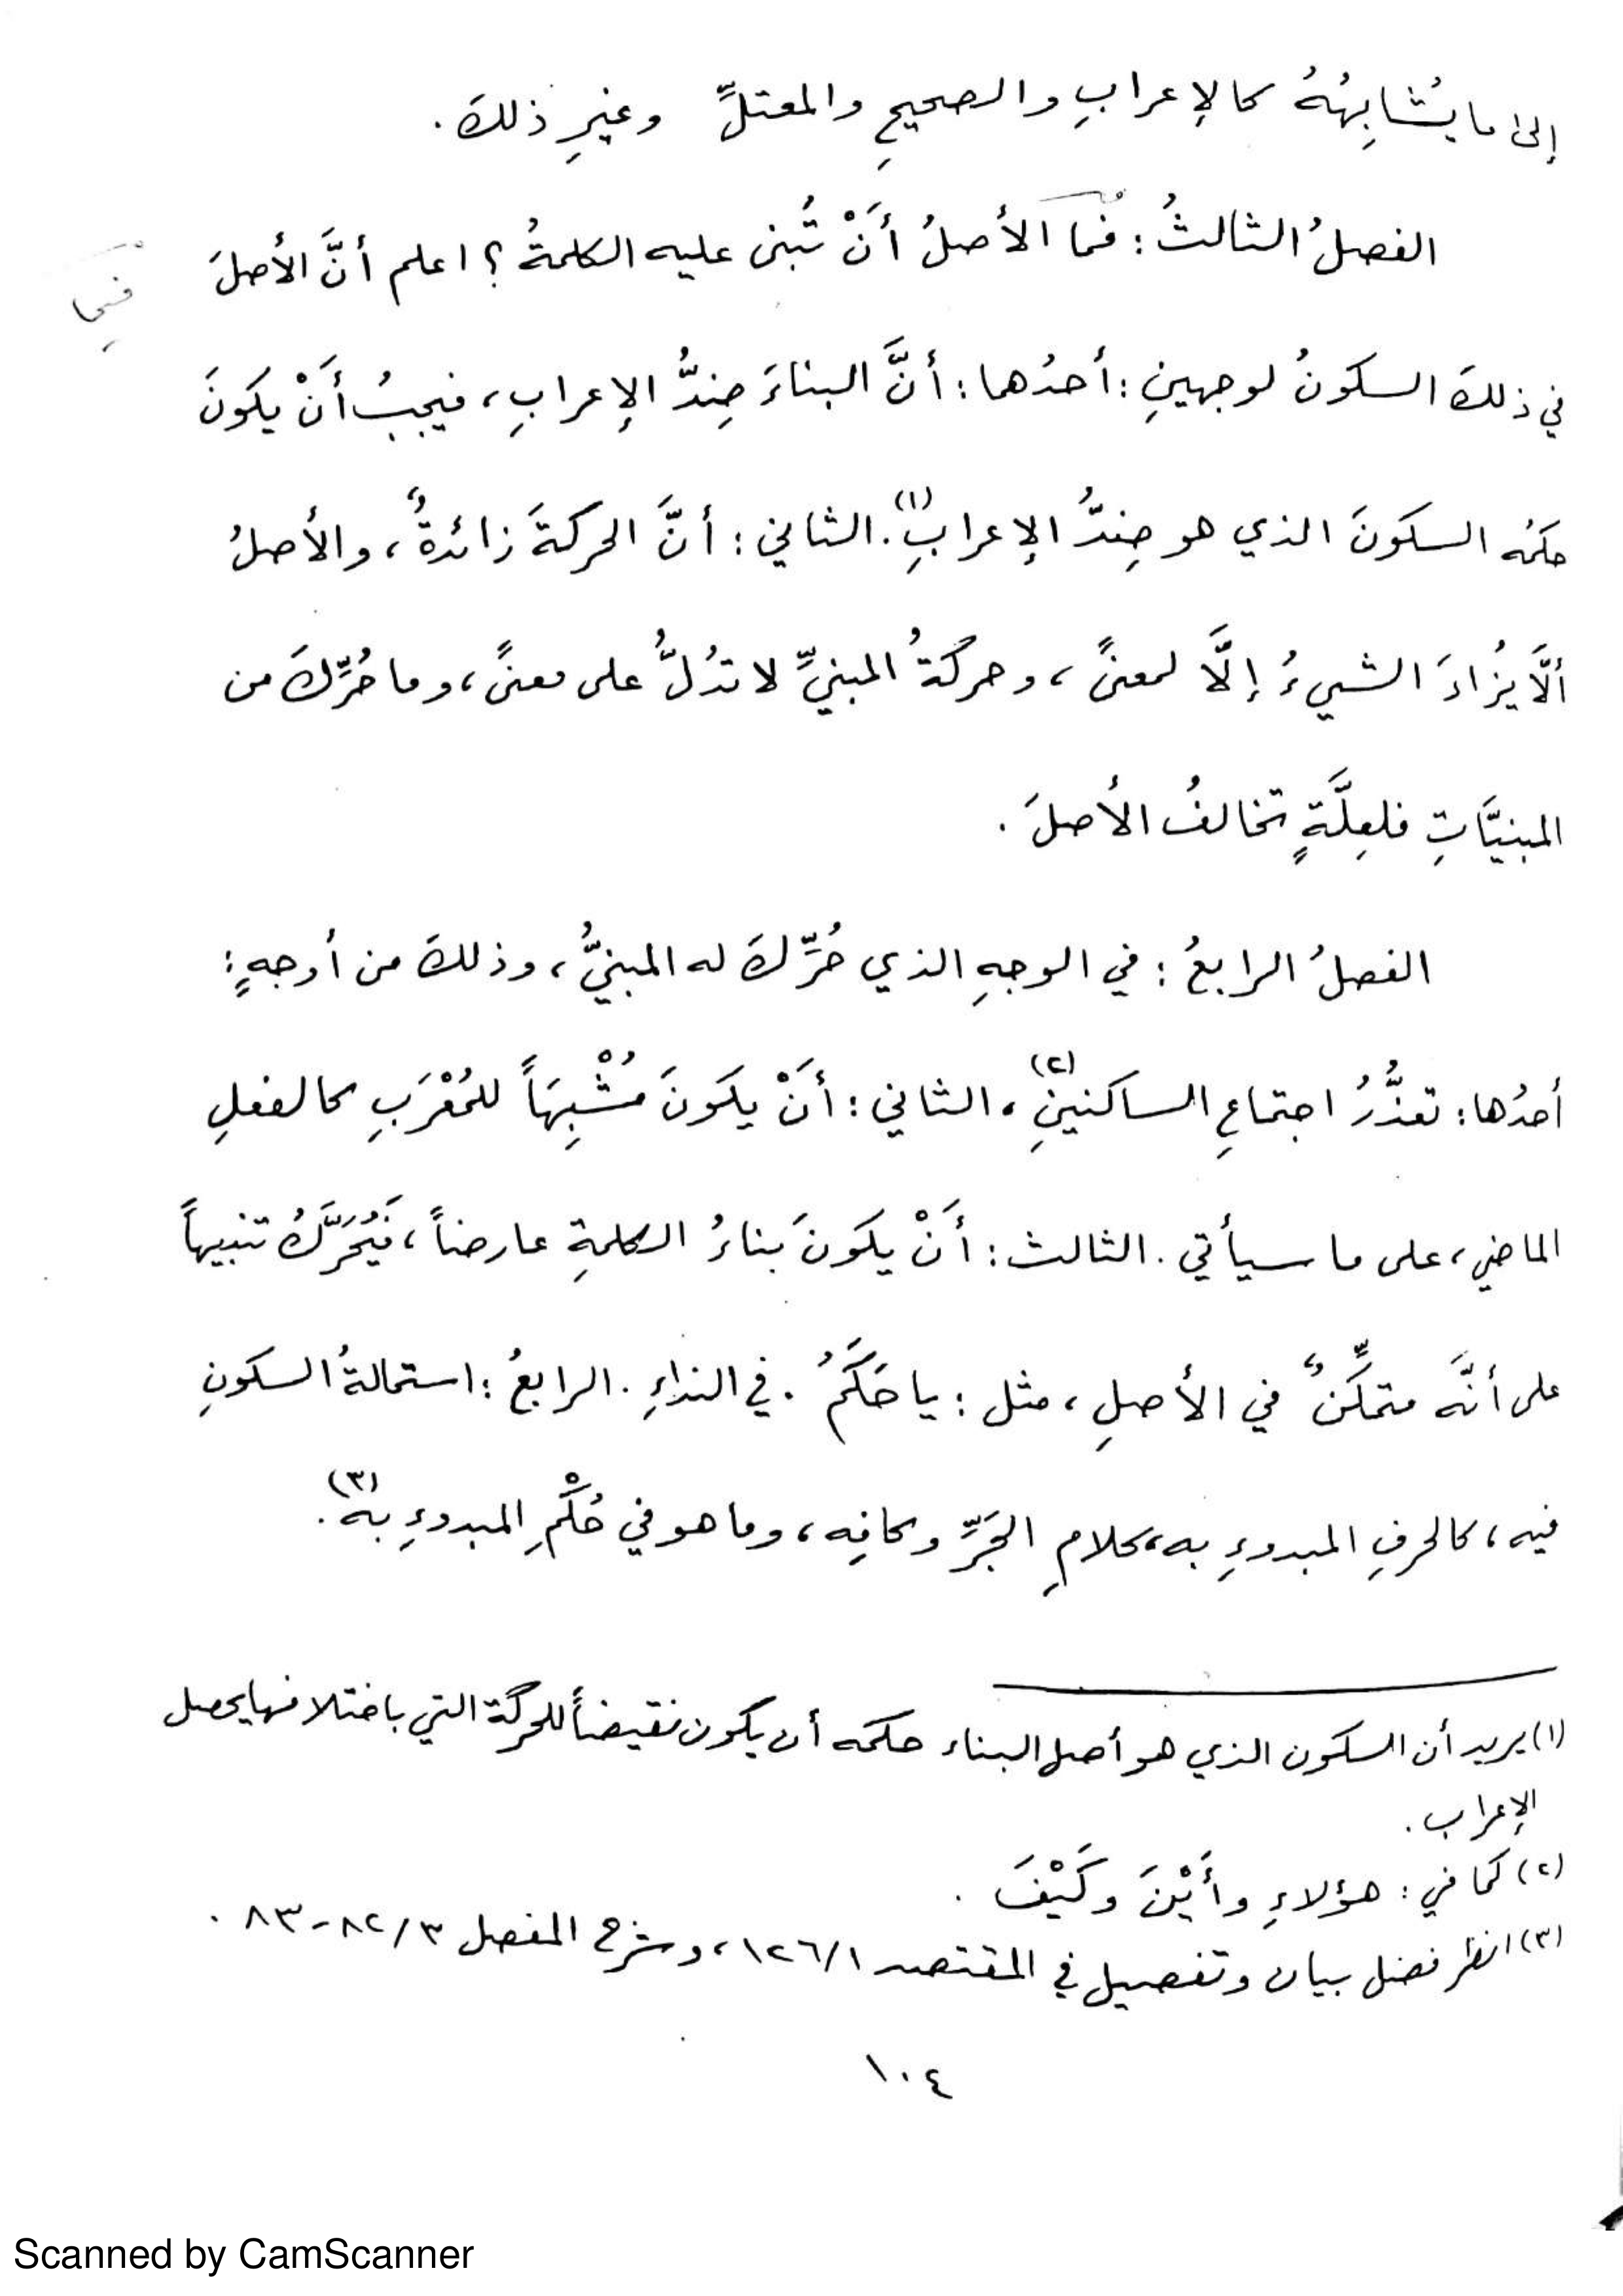 إلى ما يُشابِهُهُ كالإعرابِ والصحيحِ والمعتلِّ وغيرِ ذلكَ.
الفصلُ الثالثُ: فما الأصلُ أَنْ تُبنى عليه الكلمةُ؟ اعلم أنَّ الأصلَ
في ذلكَ السكونُ لوجهينِ: أحدُهما: أنَّ البناءَ ضِدُّ الإعرابِ، فيجبُ أَنْ يكونَ
حكمُه السكونَ الذي هو ضِدُّ الإعرابِ(١). الثاني: أنَّ الحركةَ زائدةٌ، والأصلُ
ألَّا يُزادَ الشيءُ إلَّا لمعنىً، وحركةُ المبنيِّ لا تدُلُّ على معنىً، وما حُرِّكَ من
المبنيَّاتِ فلعِلَّةٍ تخالفُ الأصلَ.
الفصلُ الرابعُ: في الوجهِ الذي حُرِّكَ له المبنيُّ، وذلكَ من أوجهٍ:
أحدُها: تعذُّرُ اجتماعِ الساكنينِ(٢)، الثاني: أَنْ يكونَ مُشْبِهَاً للمُعْرَبِ كالفعلِ
الماضي، على ما سيأتي. الثالث: أَنْ يكونَ بناءُ الكلمةِ عارضاً، فَيُحَرَّكُ تنبيهاً
على أنَّه متمكِّنٌ في الأصلِ، مثل: يا حَكَمُ. في النداءِ. الرابعُ: استحالةُ السكونِ
فيه، كالحرفِ المبدوءِ به، كلامِ الجَرِّ وكافِه، وما هو في حُكْمِ المبدوءِ به(٣).
(١) يريد أن السكون الذي هو أصل البناء حكمه أن يكون نقيضاً للحركة التي باختلافها يحصل
الإعراب.
(٢) كما في: هؤلاءِ وأَيْنَ وكَيْفَ.
(٣) انظر فضل بيان وتفصيل في المقتصد ١/١٢٦، وشرح المفصل ٣/٨٢-٨٣.
١٠٤
Scanned by CamScanner